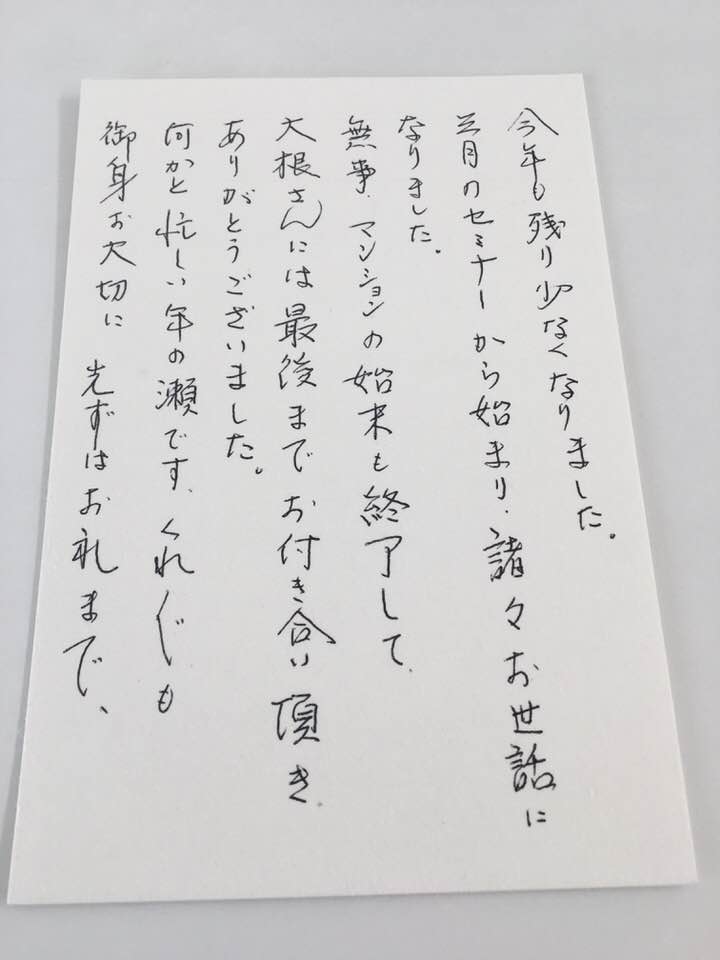 今年も残り少なくなりました。
三月のセミナーから始まり、諸々お世話に
なりました。
無事、マンションの始末も終了して、
大根さんには最後までお付き合い頂き、
ありがとうございました。
何かと忙しい年の瀬です、くれ〴〵も
御身お大切に 先ずはお礼まで、